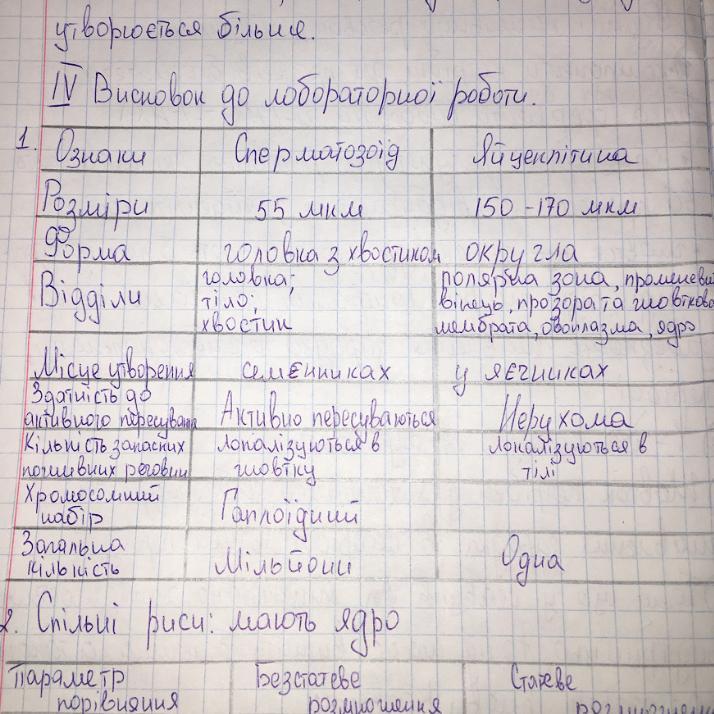 утворюється більше.
IV Висновок до лобораторної роботи.
1. Ознаки Сперматозоїд Яйцеклітина
Розміри 55 мкм 150 - 170 мкм
Форма головка з хвостиком округла
Відділи головка; тіло; хвостик полярна зона, променевий вінець, прозора та жовткова мембрата, овоплазма, ядро
Місце утворення сем'єниках у яєчниках
Здатність до активного пересування Активно пересуваються Нерухома
Кількість запасних поживних речовин локалізуються в жовтку локалізуються в тілі
Хромосомний набір Гаплоїдний
Загальна кількість Мільйони Одна
2. Спільні риси: мають ядро
Параметр порівняння Безстатеве розмноження Статеве розмноження